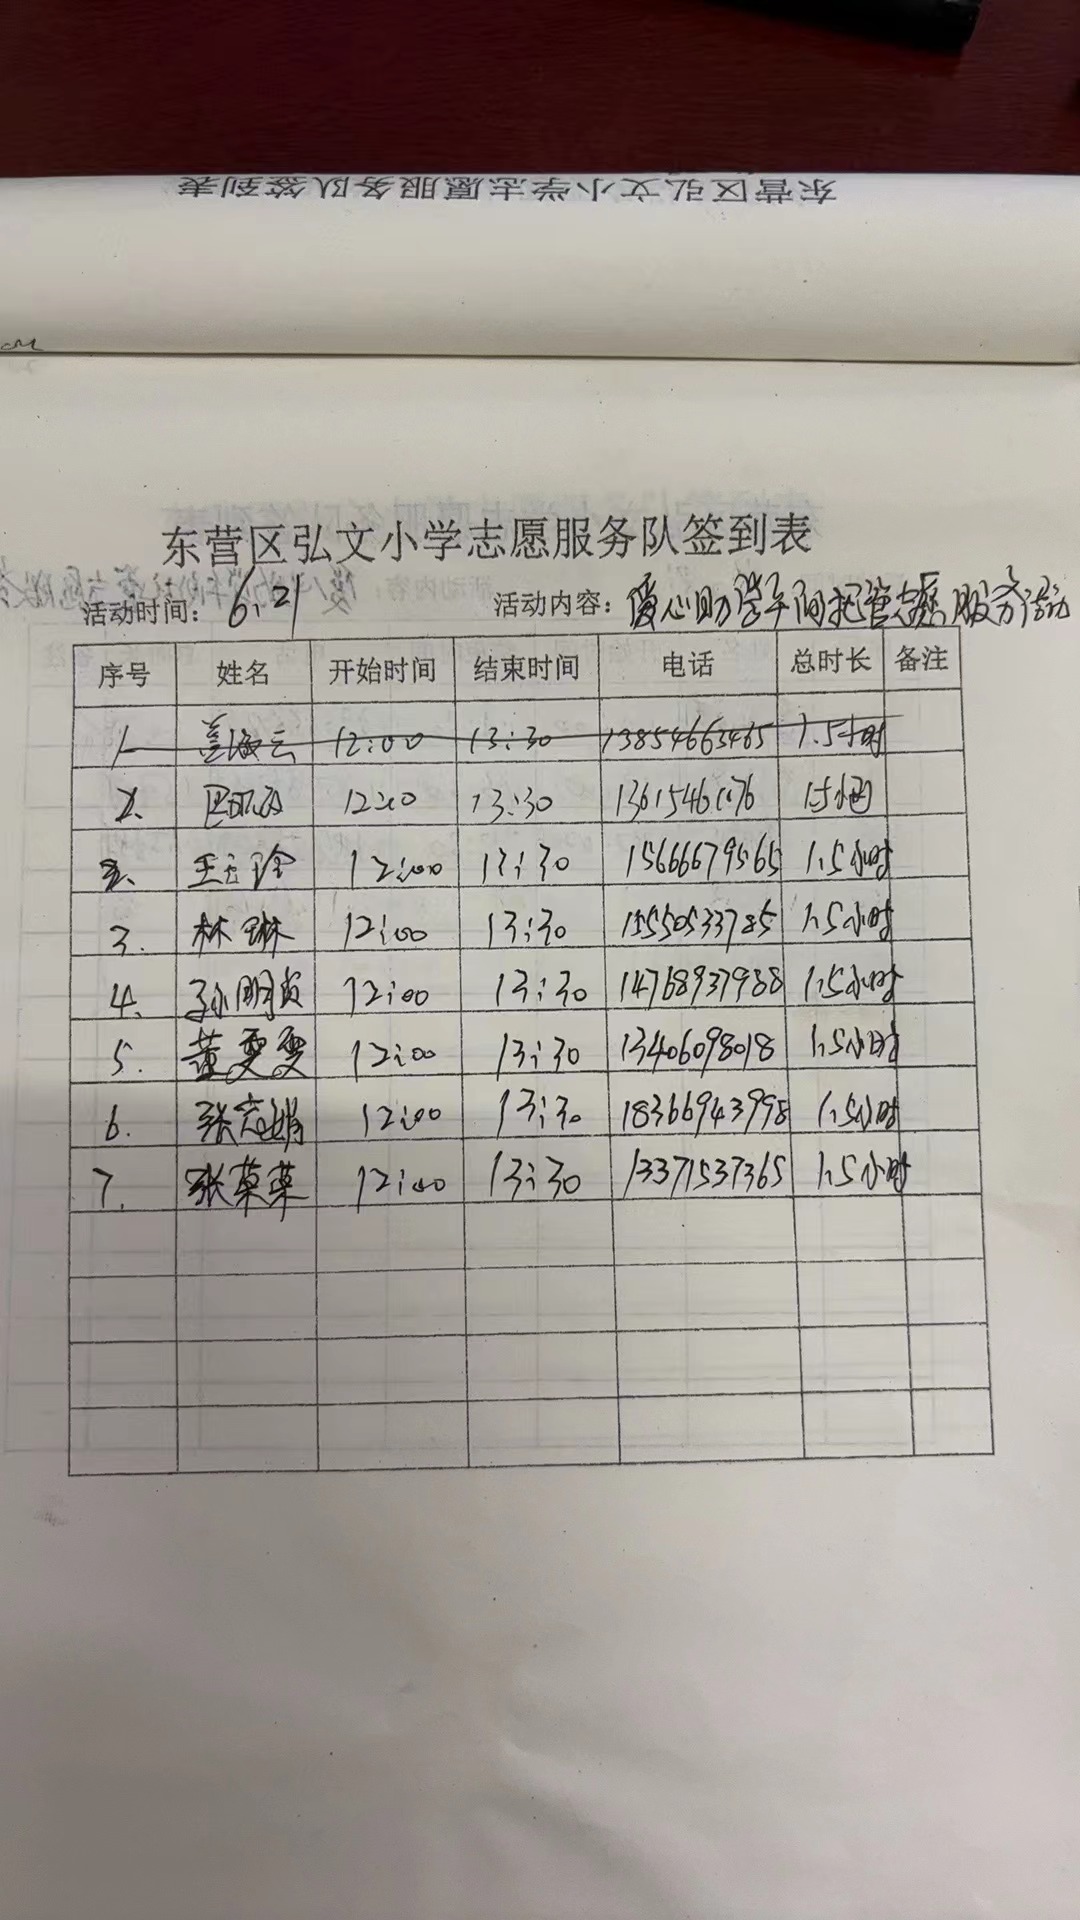 东营区弘文小学志愿服务队签到表
东营区弘文小学志愿服务队签到表
活动时间： 6.21 活动内容： 爱心助学午间托管志愿服务活动
序号 姓名 开始时间 结束时间 电话 总时长 备注
1 12:00 13:30 13854663465 1.5小时
2. 12:00 13:30 1.5小时
2、 王玉玲 12:00 13:30 15666679565 1.5小时
3. 林琳 12:00 13:30 15550533785 1.5小时
4. 孙明贞 12:00 13:30 14768937988 1.5小时
5. 董雯雯 12:00 13:30 13406098018 1.5小时
6. 张志娟 12:00 13:30 18366943998 1.5小时
7. 张菜菜 12:00 13:30 13371537365 1.5小时